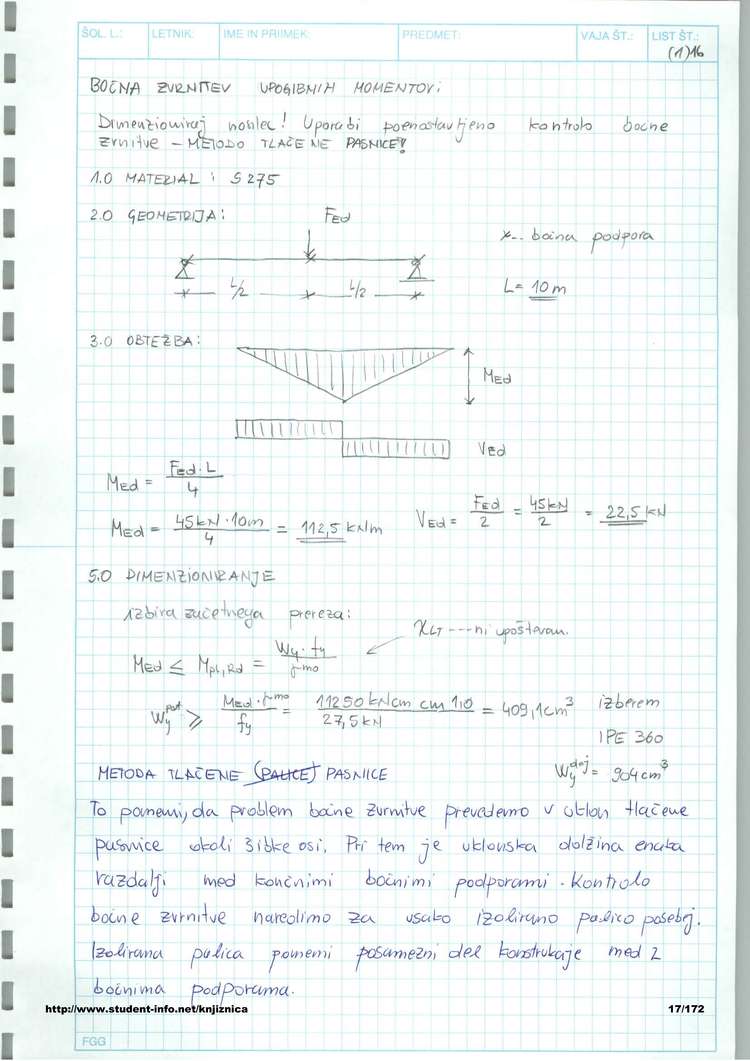 ŠOL. L.: LETNIK: IME IN PRIIMEK: PREDMET: VAJA ŠT.: LIST ŠT.:
(1)16
BOČNA ZVRNITEV UPOGIBNIH MOMENTOV:
Dimenzioniraj nosilec! Uporabi poenostavljeno kontrolo bočne
zvrnitve – METODO TLAČENE PASNICE!
1.0 MATERIAL: S 275
2.0 GEOMETRIJA: FEd
x-- bočna podpora
L/2 L/2 L= 10 m
3.0 OBTEŽBA:
MEd
VEd
MEd = FEd·L / 4
MEd = 45kN·10m / 4 = 112,5 kNm VEd = FEd / 2 = 45kN / 2 = 22,5 kN
5.0 DIMENZIONIRANJE
izbira začetnega prereza:
χLT ---- ni upoštevan.
MEd ≤ Mpl,Rd = Wy·fy / γM0
Wy^pot ≥ MEd·γM0 / fy = 11250 kNcm cm 1,0 / 27,5 kN = 409,1 cm³ izberem
IPE 360
METODA TLAČENE (PALICE) PASNICE Wy^dej = 904 cm³
To pomeni, da problem bočne zvrnitve prevedemo v uklon tlačene
pasnice okoli šibke osi. Pri tem je uklonska dolžina enaka
razdalji med končnimi bočnimi podporami. Kontrolo
bočne zvrnitve naredimo za vsako izolirano palico posebej.
Izolirana palica pomeni posamezni del konstrukcije med 2
bočnima podporama.
http://www.student-info.net/knjiznica 17/172
FGG